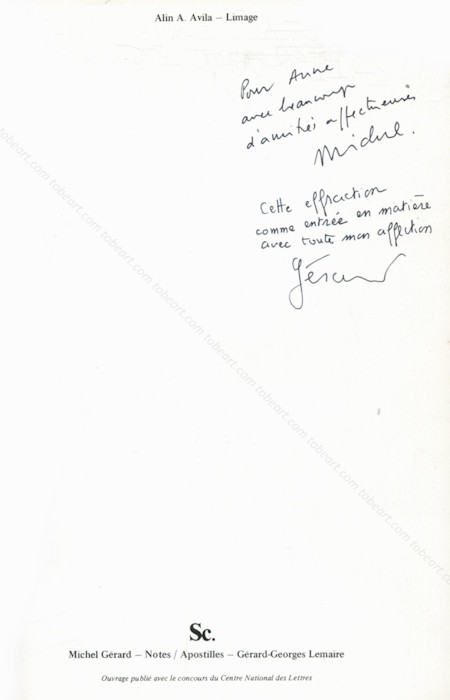 Alin A. Avila – Limage
Pour Anne
avec beaucoup
d'amitiés affectueuses
Michel.
Cette effraction
comme entrée en matière
avec toute mon affection
Gérard
Sc.
Michel Gérard – Notes / Apostilles – Gérard-Georges Lemaire
Ouvrage publié avec le concours du Centre National des Lettres
tobeart.com tobeart.com tobeart.com tobeart.com tobeart.com tobeart.com tobeart.com tobeart.com tobeart.com